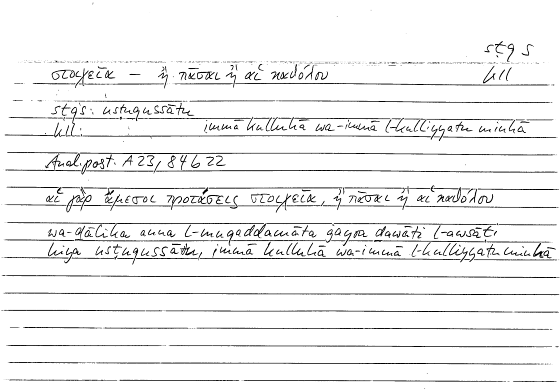 sṭqs
στοιχεῖα — ἢ πᾶσαι ἢ αἱ καθόλου kll
sṭqs: usṭuqussātu
kll: immā kulluhā wa-immā l-kulliyyatu minhā
Anal. post. A 23, 84b22
αἱ γὰρ ἄμεσοι προτάσεις στοιχεῖα, ἢ πᾶσαι ἢ αἱ καθόλου
wa-ḏālika anna l-muqaddamāta ġayra ḏawāti l-awsāṭi
hiya usṭuqussātu, immā kulluhā wa-immā l-kulliyyatu minhā